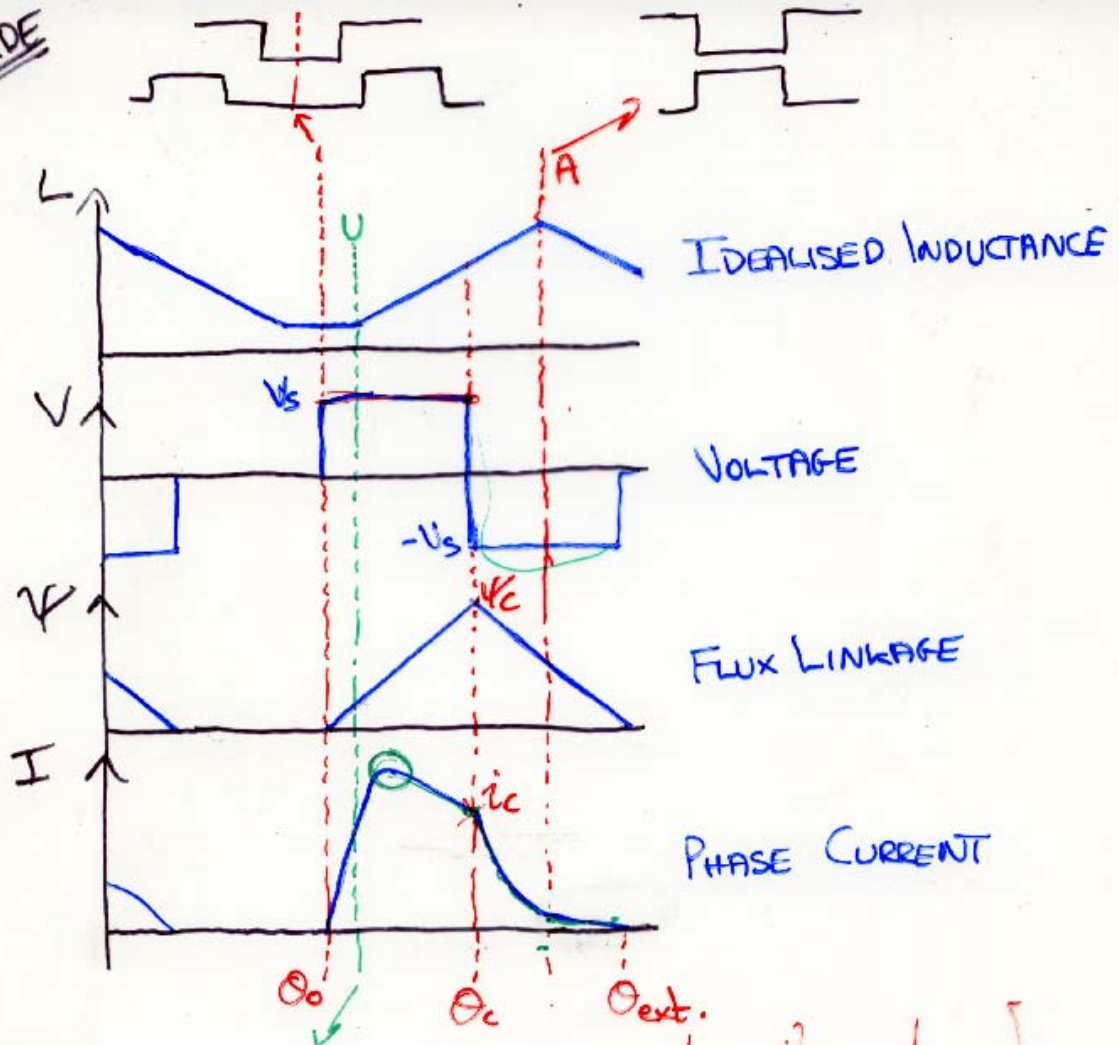 A
L
U
IDEALISED INDUCTANCE
Vs
V
VOLTAGE
-Vs
Ψ
Ψc
FLUX LINKAGE
I
ic
PHASE CURRENT
θo
θc
θext.